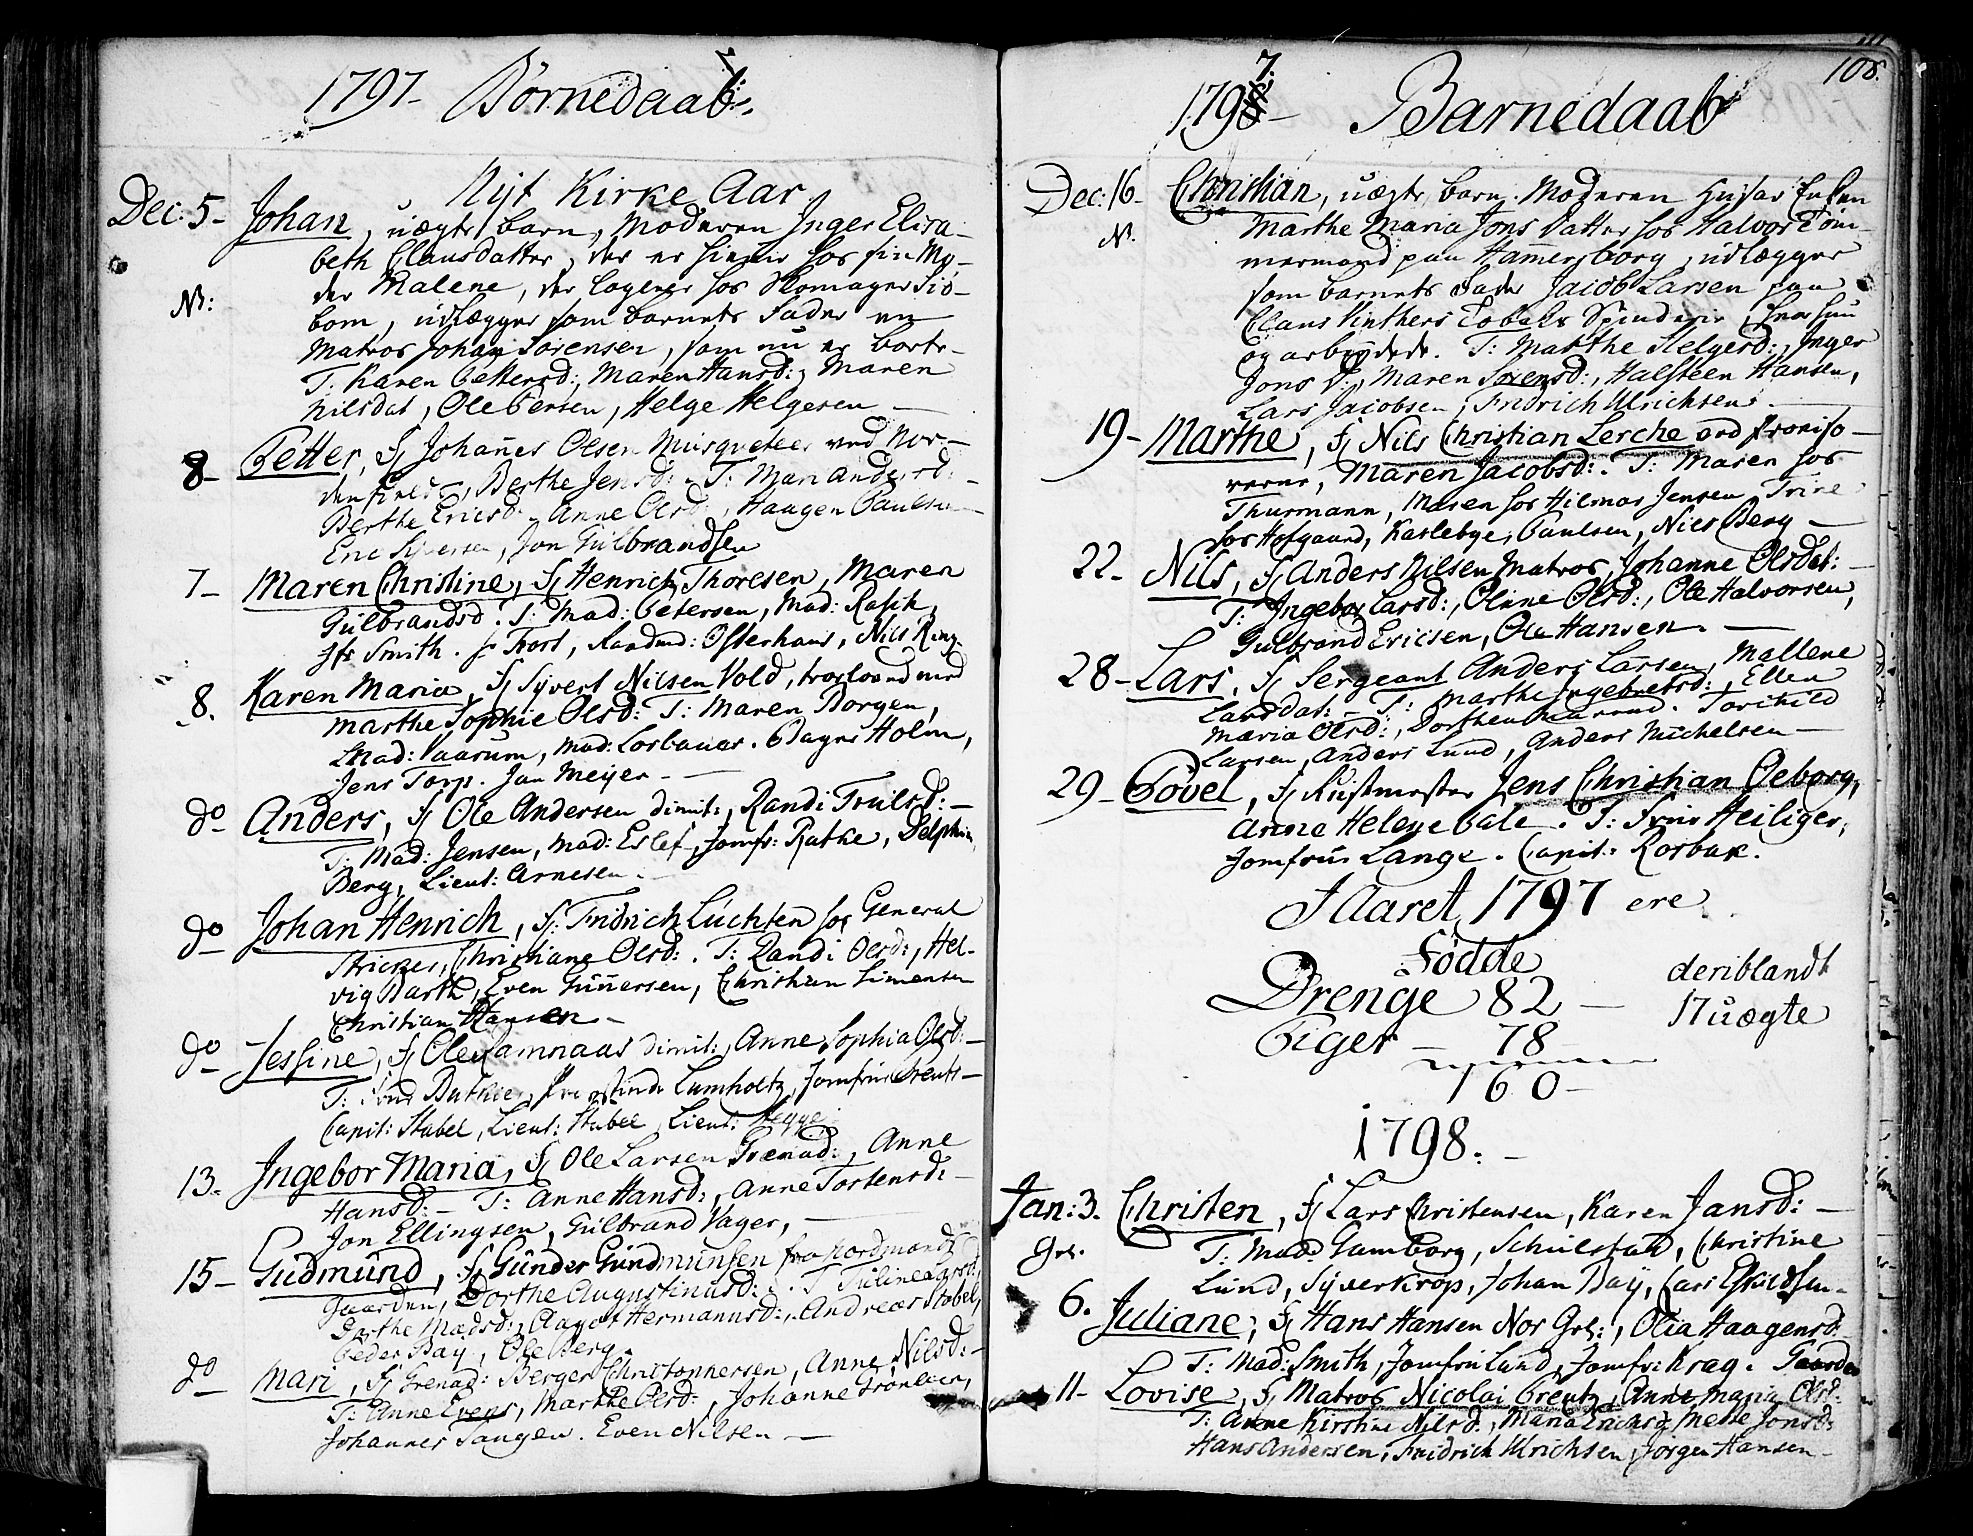 1797 - Børnedaab.
Nyt Kirke Aar
Dec: 5 - Johan, uægte barn, Moderen Inger Elisa-
beth Clausdatter, der er hos sin Mo-
der Malene, der logerer hos Skomager
NB:
bom, udlægger som barnets Fader en
Matros Johan Sørensen, som nu er borte-
T: Karen Pettersd:, Maren Hansd:, Maren
Nilsdat, Ole Persen, Helge Helgesen -
8 - Petter, Johañes Olsen Musqueteer ved Nor-
denfield:, Berthe Jensd: T: Mari Andersd: -
Berthe Ericsd: Anne Olsd:, Haagen Paulsen -
Eric Syversen, Jon Gulbrandsen
7 - Maren Christine, Henrich Thoresen, Maren
Gulbrandsd. T: Mad: Petersen, Mad: Rasch,
Jfr Smith. Frost, Raadmd: Osterhaus, Nils Ring.
8. Karen Maria, Syvert Nilsen Vold,
Marthe Sophie Olsd: T: Maren Borgen,
Mad: Vaarum, Mad: Holm,
Jens Torp. Jan Meyer -
do Anders, Ole Andersen dimit:, Randi Trulsd: -
T: Mad: Jensen, Mad: Eslef, Jomfr: Rathe, Delphin
Berg, Lieut: Arnesen -
do Johan Henrich, Fridrich Lüchten hos General
Stricker, Christiane Olsd: . T: Randi Olsd:, Hel-
vig Barth, Even Guñersen, Christian Simensen
Christian Hansen -
do Jessine, Ole Ramnaas dimit:, Anne Sophia Olsd: -
T: Lumholtz, Jomfrue
Capit: Stabel, Lieut: Stabel, Lieut: Hegge.
13. Ingebor Maria, Ole Larsen Grenad:, Anne
Hansd: - T: Anne Hansd:, Anne Tostensd: -
Jon Ellingsen, Gulbrand Vager, -
15 - Gudmund, Gunder Gundmunsen fra Nordmands
Gaarden, Dorthe Augustinusd: . T
Dorthe Madsd:, Aagot Hermannsd:, Andreas Stabel,
Peder Bay, Ole Berg.
do Mari, Grenad: Berger Christophersen, Anne Nilsd: -
T: Anne Evens, Marthe Olsd:, Johanne Grønlien,
Johannes Haugen. Even Nilsen -
108.
1797 - Barnedaab
Dec: 16 - Christian, uægte barn. Moderen Husar Enken
Marthe Maria Jons Datter hos Halvor Tom-
NB.
mermand paa Hamersborg, udlægger
som barnets Fader Jacob Larsen paa
Claus Vinthers Tobaks Spinderie, hvor hun
og arbeydede. T: Marthe Helgesd:, Inger
Jons D:, Maren Sørensd:, Halsteen Hansen,
Lars Jacobsen, Fridrich Ulrichsen. -
19 - Marthe, Nils Christian Lerche ved
Maren Jacobsd: . T: Maren hos
Thurmann, Maren hos Hilmar Jensen, Trine
hos Hofgaard, Karlebye, Paulsen, Niels Berg -
22 - Nils, Anders Nilsen Matros, Johanne Olsdat: -
T: Ingebor Larsd:, Olinne Olsd:, Ole Halvorsen,
Gulbrand Ericsen, Ole Hansen. -
28 - Lars, Sergeant Anders Larsen, Mallene
Larsdat: - T: Marthe Ingebretsd:, Ellen
Maria Olsd:, Torchild
Larsen, Anders Lund, Anders Michelsen -
29 - Povel, Rustmester Jens Christian Oeborg,
Anne Helene Pale. T: Frue Heiliger,
Jomfrue Lange. Capit: Rosbak.
I Aaret 1797 ere
Fødde
Drenge 82 - deriblandt
17 uægte
Piger - 78
160 -
1798. -
Jan: 3. Christen, Lars Christensen, Karen Jansd: -
Grl.
T: Mad: Gamborg, Schulstad, Christine
Lund, Syverkrop, Johan Bay, Lars Eskildsen -
6. Juliane, Hans Hansen Nor Grl:, Olia Haagensd:
T: Mad: Smith, Jomfru Lund, Jomfr: Krag.
11 - Lovise, Matros Nicolai Creutz, Anne Maria Olsd:
T: Anne Kirstine Nilsd:, Maria Ericksd:, Mette Jonsd:
Hans Andersen, Fridrich Ulrichsen, Jørgen Hansen -